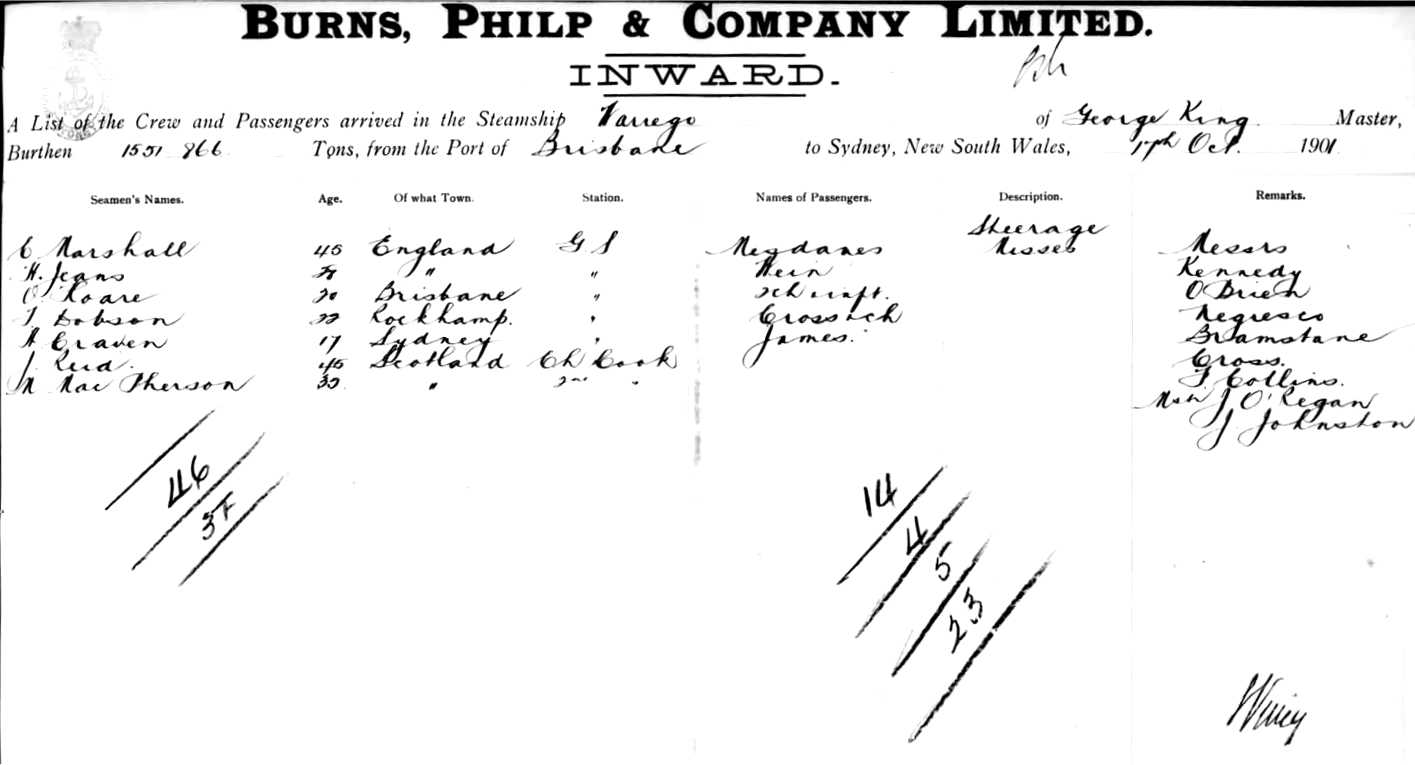 BURNS, PHILP & COMPANY LIMITED.
INWARD.
A List of the Crew and Passengers arrived in the Steamship Warrego of George King Master,
Burthen 1551 866 Tons, from the Port of Brisbane to Sydney, New South Wales, 17th Oct. 1901
Seamen's Names. Age. Of what Town. Station. Names of Passengers. Description. Remarks.
Steerage
C Marshall 45 England G S Mesdames Misses Messrs
H. Jeans " " Hein Kennedy
O' Hoare 20 Brisbane " O Brien
T Dobson 22 Rockhamp. " Negresco
A Craven 17 Sydney " James. Bramstane
J. Reid. 45 Scotland Ch Cook Cross.
M Mac Pherson " 2nd " T Collins.
Mstr J O'Regan
J Johnston
46
37
14
4
5
23